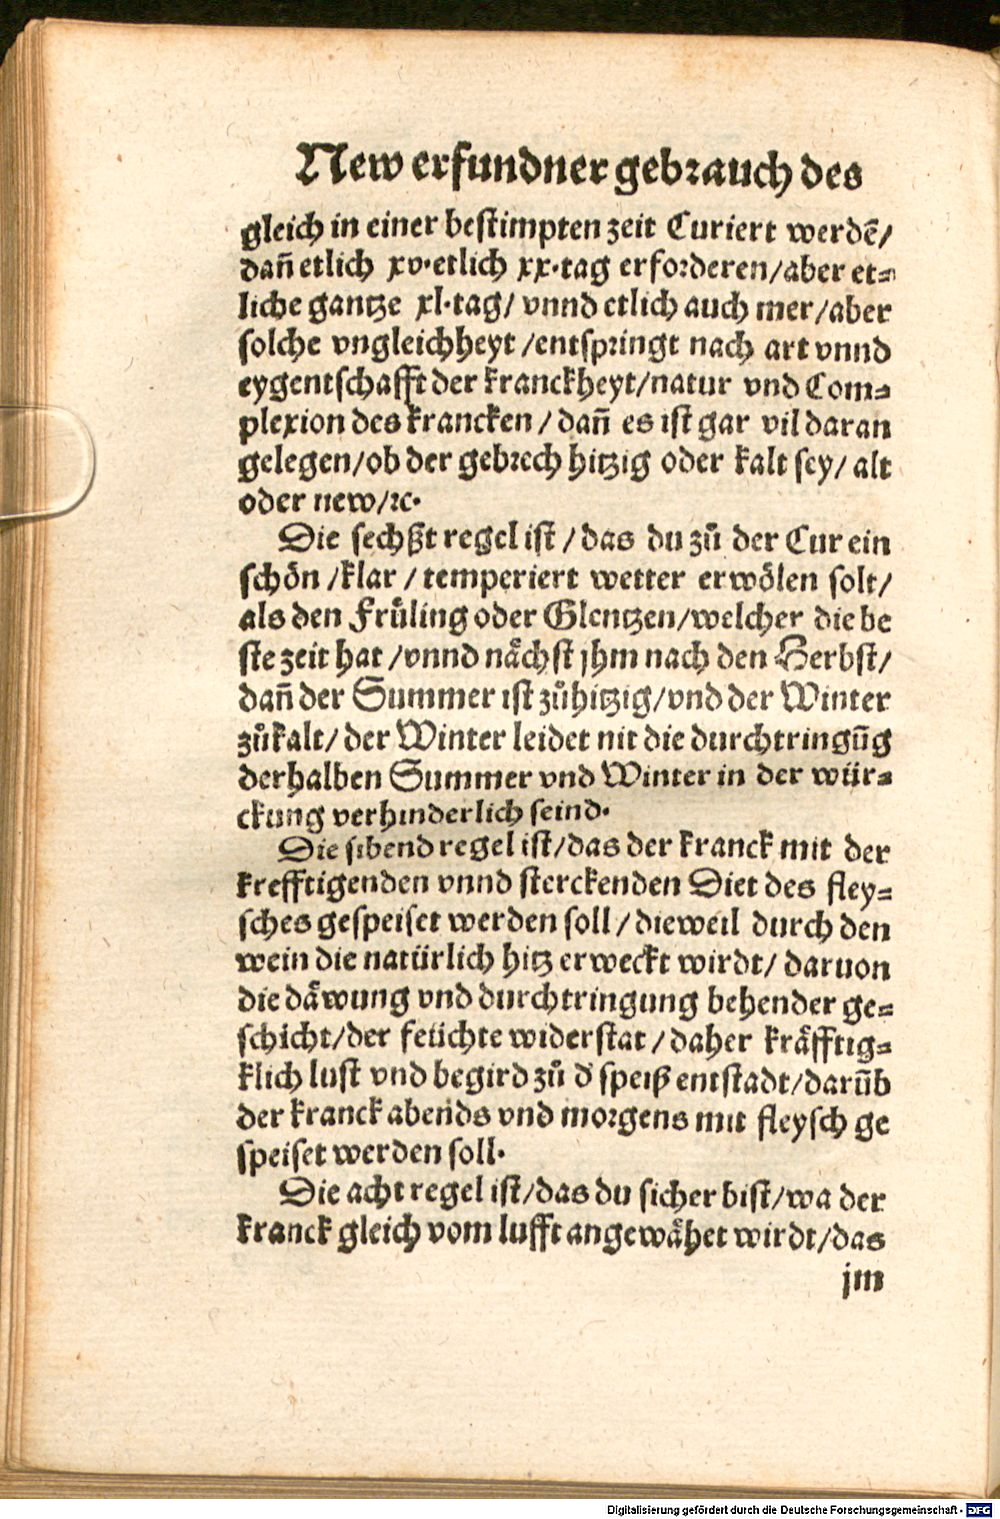 New erfundner gebrauch des
gleich in einer bestimpten zeit Curiert werdẽ/
dañ etlich xv. etlich xx. tag erforderen/aber et=
liche gantze xl. tag/ vnnd etlich auch mer/aber
solche vngleichheyt /entspringt nach art vnnd
eygentschafft der kranckheyt/natur vnd Com=
plexion des krancken / dañ es ist gar vil daran
gelegen/ob der gebrech hitzig oder kalt sey/ alt
oder new/ꝛc.
Die sechßt regel ist / das du zů der Cur ein
schön /klar / temperiert wetter erwölen solt/
als den Früling oder Glentzen/welcher die be
ste zeit hat /vnnd nächst jhm nach den Herbst/
dañ der Summer ist zůhitzig/vnd der Winter
zůkalt/ der Winter leidet nit die durchtringũg
derhalben Summer vnd Winter in der wür=
ckung verhinderlich seind.
Die sibend regel ist/das der kranck mit der
krefftigenden vnnd sterckenden Diet des fley=
sches gespeiset werden soll / dieweil durch den
wein die natürlich hitz erweckt wirdt/ daruon
die däwung vnd durchtringung behender ge=
schicht/der feüchte widerstat / daher kräfftig=
klich lust vnd begird zů d' speiß entstadt/darũb
der kranck abends vnd morgens mit fleysch ge
speiset werden soll.
Die acht regel ist/das du sicher bist/wa der
kranck gleich vom lufft angewähet wirdt/das
jm
Digitalisierung gefördert durch die Deutsche Forschungsgemeinschaft - DFG